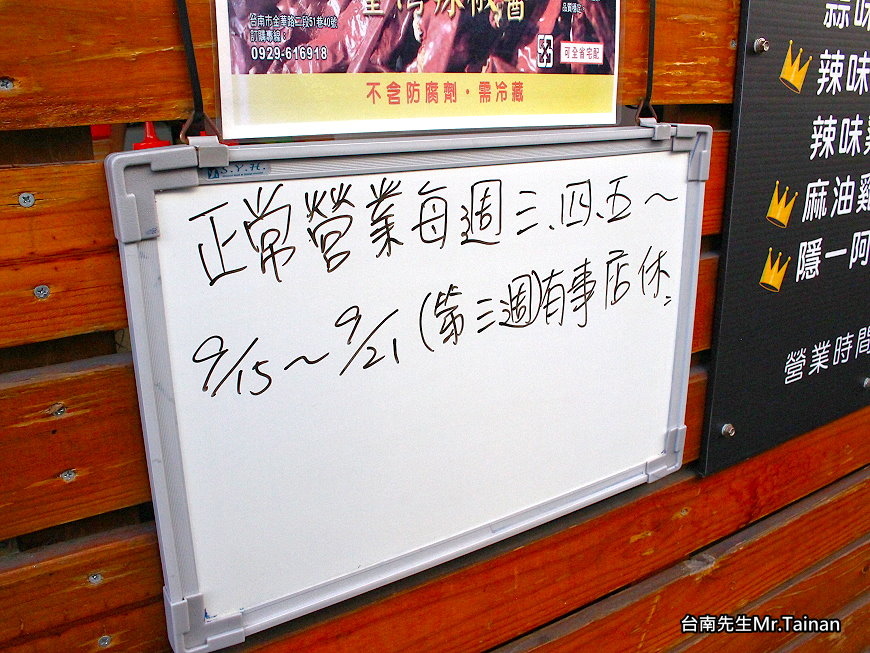 台南市金華路二段51巷40號
訂購專線
0929-616918
可全省宅配
不含防腐劑·需冷藏
正常營業每週三、四、五~
9/15~9/21(第三週)有事店休
蒜味
辣味
辣味雞
麻油雞
隱一阿
營業時間
台南先生Mr.Tainan